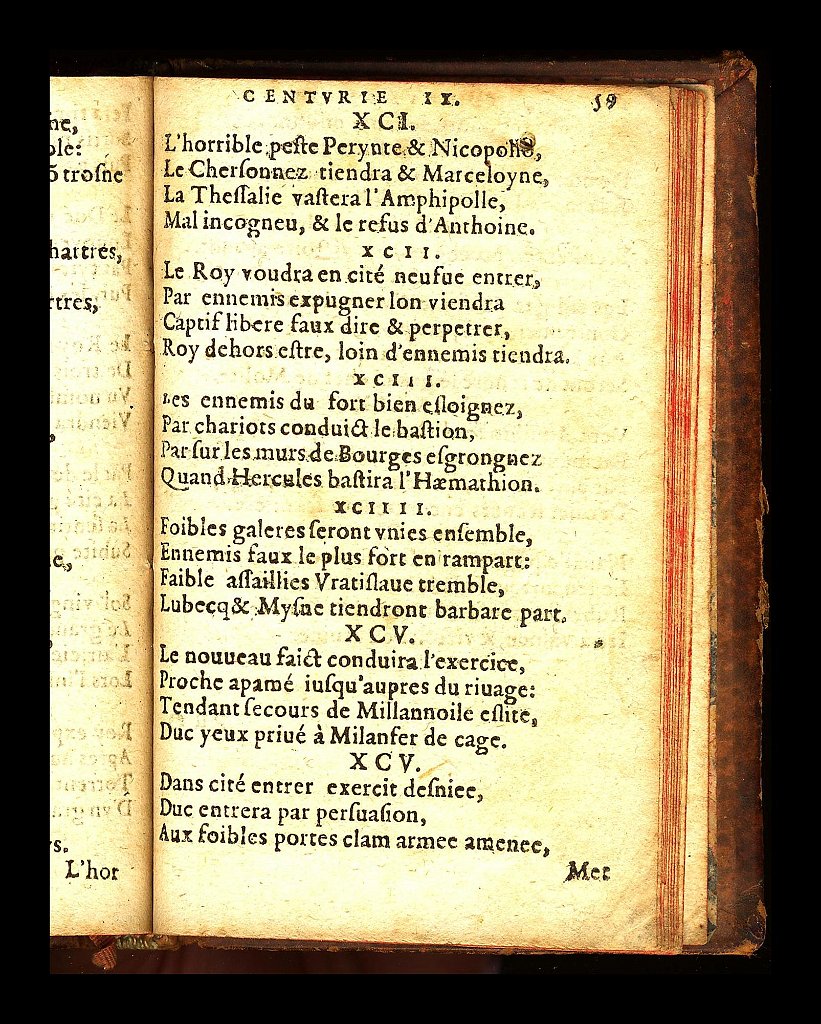 ne,
ble:
õ trosne
hartres,
rtres,
e,
rs.
L'hor
CENTVRIE IX. 59
XCI.
L'horrible peſte Perynte & Nicopolle,
Le Cherſonnez tiendra & Marceloyne,
La Theſſalie vaſtera l'Amphipolle,
Mal incogneu, & le refus d'Anthoine.
XCII.
Le Roy voudra en cité neufue entrer,
Par ennemis expugner lon viendra
Captif libere faux dire & perpetrer,
Roy dehors eſtre, loin d'ennemis tiendra.
XCIII.
Les ennemis du fort bien eſloignez,
Par chariots conduict le baſtion,
Par ſur les murs de Bourges eſgrongnez
Quand Hercules baſtira l'Hæmathion.
XCIIII.
Foibles galeres ſeront vnies enſemble,
Ennemis faux le plus fort en rampart:
Faible aſſaillies Vratiſlaue tremble,
Lubecq & Myſne tiendront barbare part.
XCV.
Le nouueau faict conduira l'exercice,
Proche apamé iuſqu'aupres du riuage:
Tendant ſecours de Millannoile eſlite,
Duc yeux priué à Milanfer de cage.
XCV.
Dans cité entrer exercit deſniee,
Duc entrera par perſuaſion,
Aux foibles portes clam armee amenee,
Met